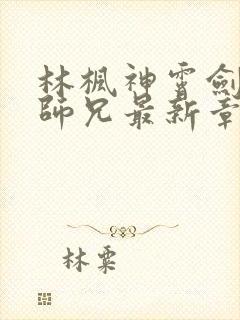 林楓神霄劍
師兄最新章
林粟